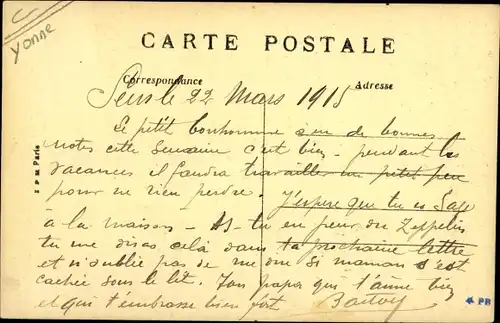 Yonne
CARTE POSTALE
Correspondance
Adresse
Sens le 22 Mars 1915
Le petit bonhomme a eu de bonnes
notes cette semaine c'est bien - pendant les
vacances il faudra travailler un petit peu
pour ne rien perdre. J'espère que tu es sage
a la maison - As-tu eu peur du Zeppelin
tu me diras celà dans ta prochaine lettre
et n'oublie pas de me dire si maman s'est
cachée sous le lit. Ton papa qui t'aime bien
et qui t'embrasse bien fort
Paris
PR